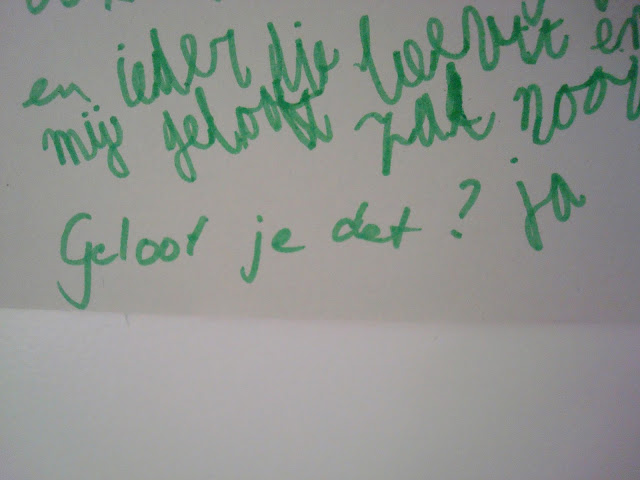 en ieder die leeft en
mij gelooft zal nooi
Geloof je dat? ja